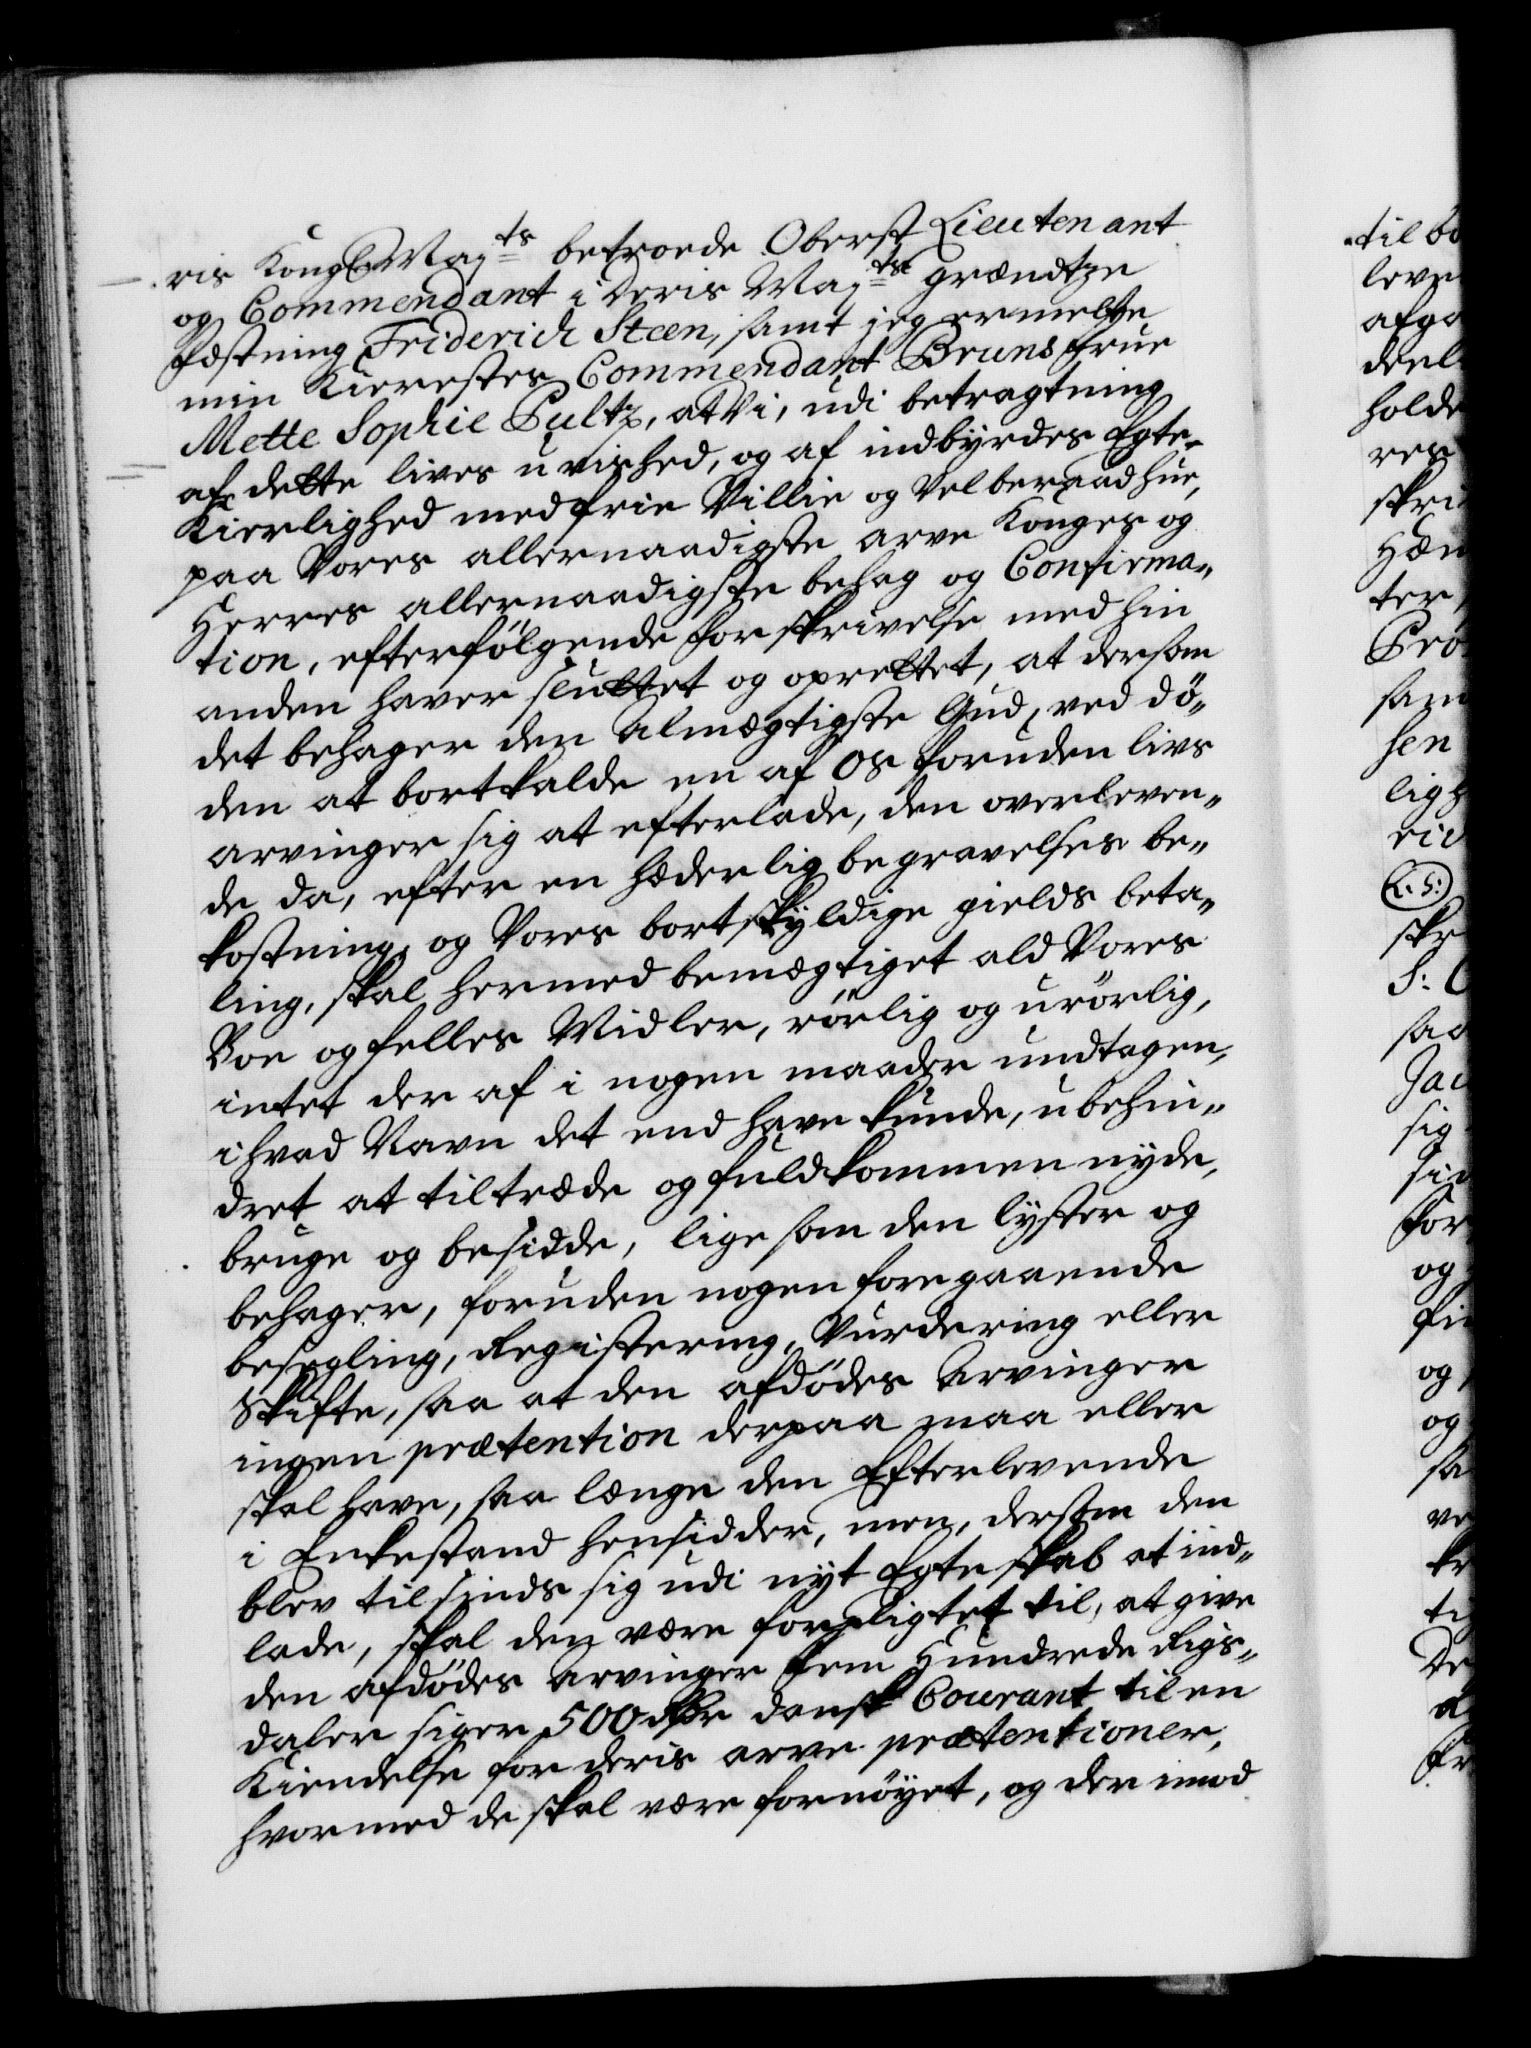 ris Kongl. May.ts betroede Oberst Lieutenant
og Commendant i Deris May.ts grændtze
Fæstning Friderich Steen, samt jeg ermelte
min Kierestes Commendant Bruns Frue
Mette Sophie Pultz, at Vi, udi betragtning
af dette lives uvished, og af indbyrdes Egte-
Kierlighed med frie Villie og Velberaad hue,
paa Vores allernaadigste arve Konges og
Herres allernaadigste behag og Confirma-
tion, efterfølgende forskrivelse med hin
anden haver sluttet og oprettet, at dersom
det behager den Almægtigste Gud, ved dø-
den at bortkalde en af Os foruden livs
arvinger sig at efterlade, den overleven-
de da, efter en hæderlig begravelses be-
kostning, og Vores bortskyldige gields beta-
ling, skal hermed bemægtiget ald Vores
Boe og felles Midler, rørlig og urørlig,
intet der af i nogen maader undtagen,
i hvad Navn det end have kunde, ubehin-
dret at tiltræde og fuldkommen nyde,
bruge og besidde, lige som den lyster og
behager, foruden nogen foregaaende
besegling, Registering, Vurdering eller
Skifte, saa at den afdødes Arvinger
ingen prætention derpaa maa eller
skal have, saa længe den Efterlevende
i Enkestand hensidder, men, dersom den
blev tilsinds sig udi nyt Egteskab at ind-
lade, skal den være forpligtet til, at give
den afdødes Arvinger Fem Hundrede Rigs-
daler siger 500 Rdr dansk Courant til en
Kiendelse for deris arve prætentioner,
hvormed de skal være fornøyet, og der imod